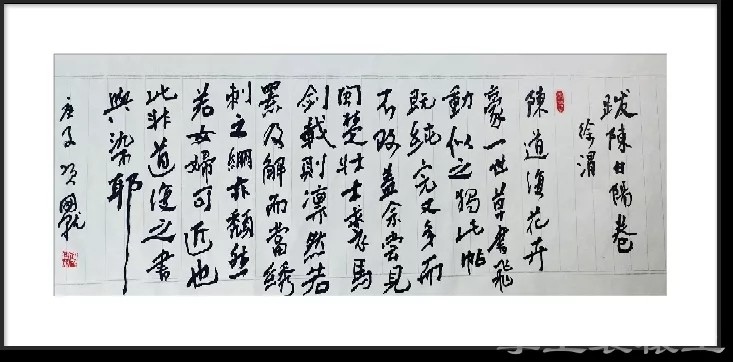 跋陳白陽卷
徐渭
陳道復花卉
豪一世草書飛
動似之獨此帖
既純完又多而
不敗蓋余嘗見
閩楚壯士裘馬
劍戟則凜然若
羆及解而當綉
刺之繃亦頹然
若女婦可近也
此非道復之書
與染耶
庚子